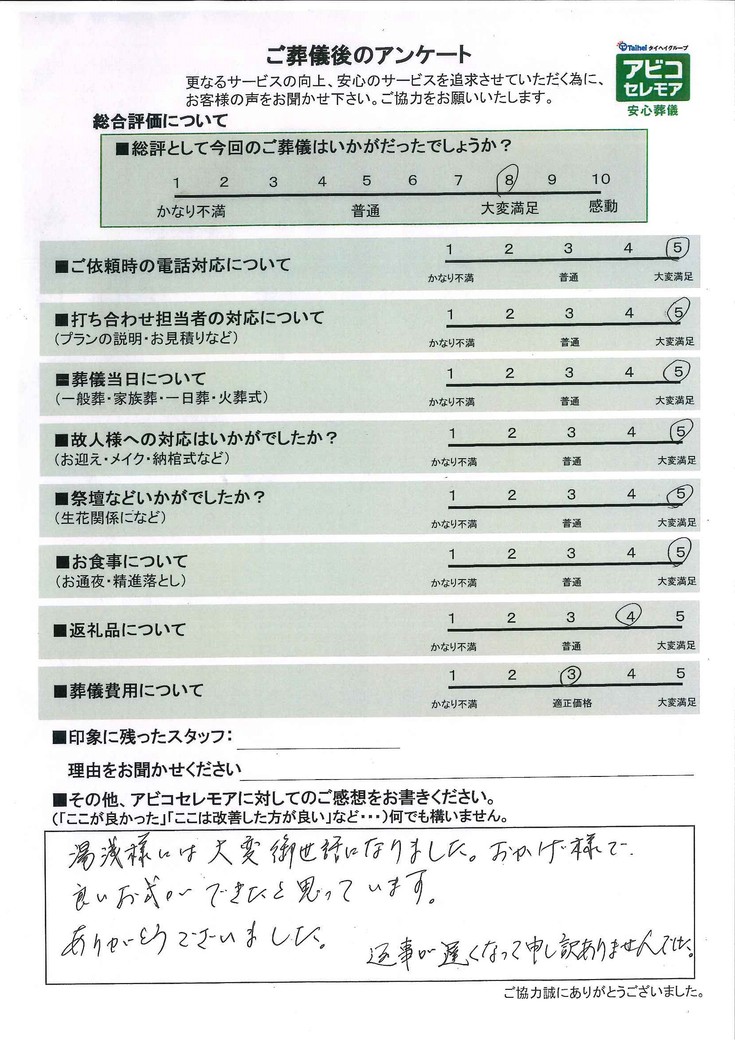 ご葬儀後のアンケート
Taihei タイヘイグループ
アビコ
セレモア
安心葬儀
更なるサービスの向上、安心のサービスを追求させていただく為に、
お客様の声をお聞かせ下さい。ご協力をお願いいたします。
総合評価について
■総評として今回のご葬儀はいかがだったでしょうか？
1 2 3 4 5 6 7 8 9 10
かなり不満 普通 大変満足 感動
■ご依頼時の電話対応について
1 2 3 4 5
かなり不満 普通 大変満足
■打ち合わせ担当者の対応について
(プランの説明・お見積りなど)
1 2 3 4 5
かなり不満 普通 大変満足
■葬儀当日について
(一般葬・家族葬・一日葬・火葬式)
1 2 3 4 5
かなり不満 普通 大変満足
■故人様への対応はいかがでしたか？
(お迎え・メイク・納棺式など)
1 2 3 4 5
かなり不満 普通 大変満足
■祭壇などいかがでしたか？
(生花関係になど)
1 2 3 4 5
かなり不満 普通 大変満足
■お食事について
(お通夜・精進落とし)
1 2 3 4 5
かなり不満 普通 大変満足
■返礼品について
1 2 3 4 5
かなり不満 普通 大変満足
■葬儀費用について
1 2 3 4 5
かなり不満 適正価格 大変満足
■印象に残ったスタッフ：
理由をお聞かせください
■その他、アビコセレモアに対してのご感想をお書きください。
(「ここが良かった」「ここは改善した方が良い」など・・・)何でも構いません。
湯浅様には大変御世話になりました。おかげ様で、
良いお式ができたと思っています。
ありがとうございました。
返事が遅くなって申し訳ありませんでした。
ご協力誠にありがとうございました。